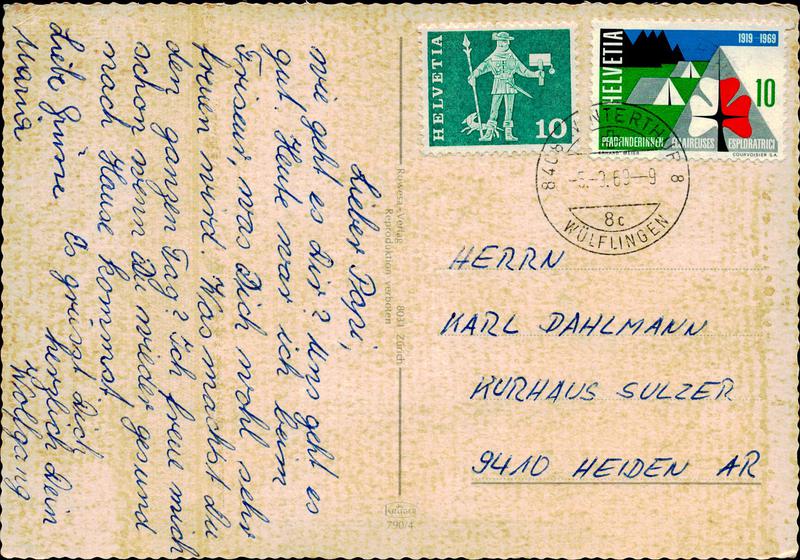 Lieber Papi,
wie geht es Dir? Uns geht es
gut! Heute war ich beim
Friseur, was Dich wohl sehr
freuen wird. Was machst du
den ganzen Tag? Ich freue mich
schon wenn Du wieder gesund
nach Hause kommst.
Es grüsst Dich
herzlich Dein
Wolfgang
Liebe Grüsse
Maria
Rowesa-Verlag 8031 Zürich
Reproduktion verboten
790/4
HELVETIA
10
1919-1969
HELVETIA
10
PFADFINDERINNEN ECLAIREUSES ESPLORATRICI
COURVOISIER S.A.
8408 WINTERTHUR 8
9.69-9
8c
WÜLFLINGEN
HERRN
KARL DAHLMANN
KURHAUS SULZER
9410 HEIDEN AR